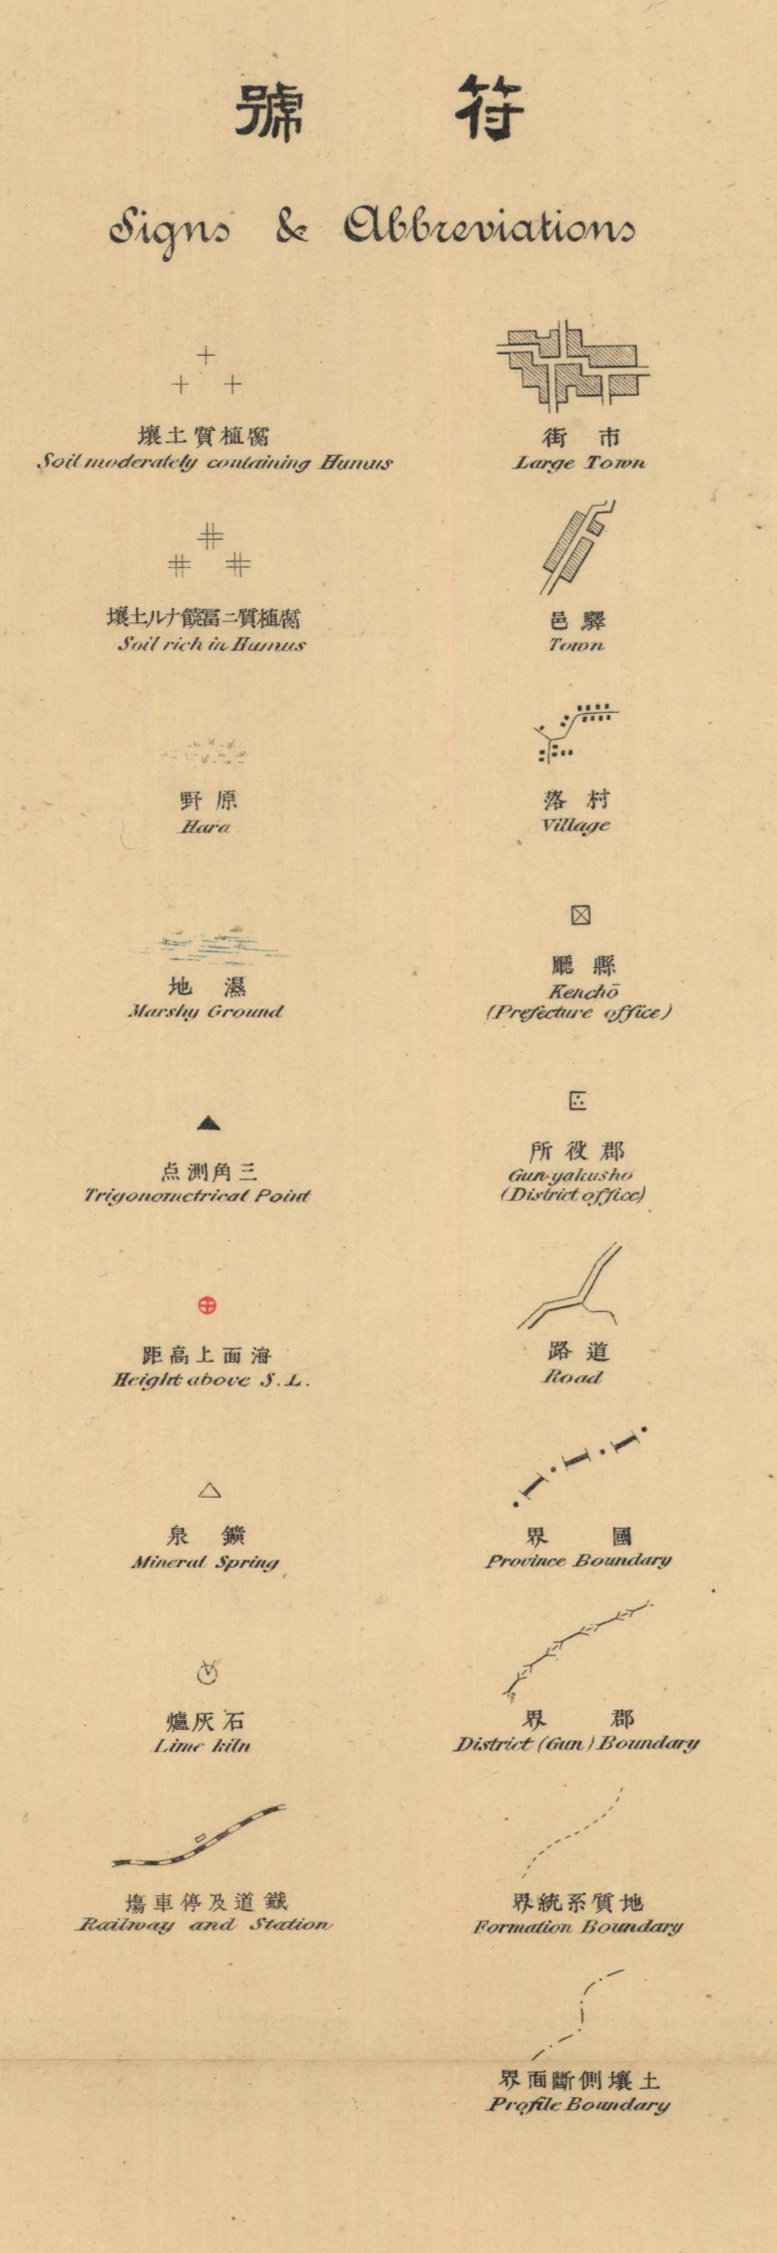 符號
Signs & Abbreviations
市街
Large Town
驛邑
Town
村落
Village
縣廳
Kenchō
(Prefecture office)
郡役所
Gun-yakusho
(District office)
道路
Road
國界
Province Boundary
郡界
District (Gun) Boundary
地質系統界
Formation Boundary
土壤側斷面界
Profile Boundary
腐植質土壤
Soil moderately containing Humus
腐植質ニ富饒ナル土壤
Soil rich in Humus
原野
Hara
濕地
Marshy Ground
三角測点
Trigonometrical Point
海面上高距
Height above S.L.
鑛泉
Mineral Spring
石灰爐
Lime kiln
鐵道及停車塲
Railway and Station